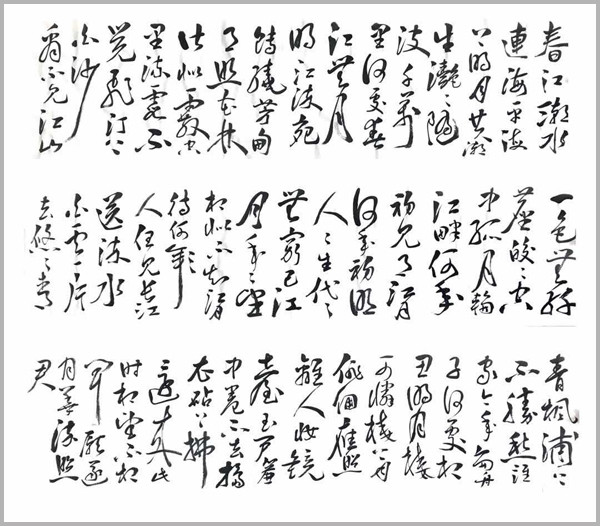 春江潮水
連海平海
上明月共潮
生灧〻隨
波千萬
里何處春
江無月
明江流宛
轉繞芳甸
月照花林
皆似霰空
里流霜不
覺飛汀上
白沙
看不見江
一色無纖
塵皎〻空
中孤月輪
江畔何
初見月江月
何年初照
人〻生代〻
無窮已江
月年〻望
相似不知江月
待何
人但見長江
送流水
白雲一片
去悠〻青
青楓浦上
不勝愁誰
家今夜扁舟
子何處相
思明月樓
可憐樓上月
徘徊應照
離人妝鏡
臺玉戶簾
中卷不去擣
衣砧上拂
還來此
時相望不相
聞願逐
月華流照
君